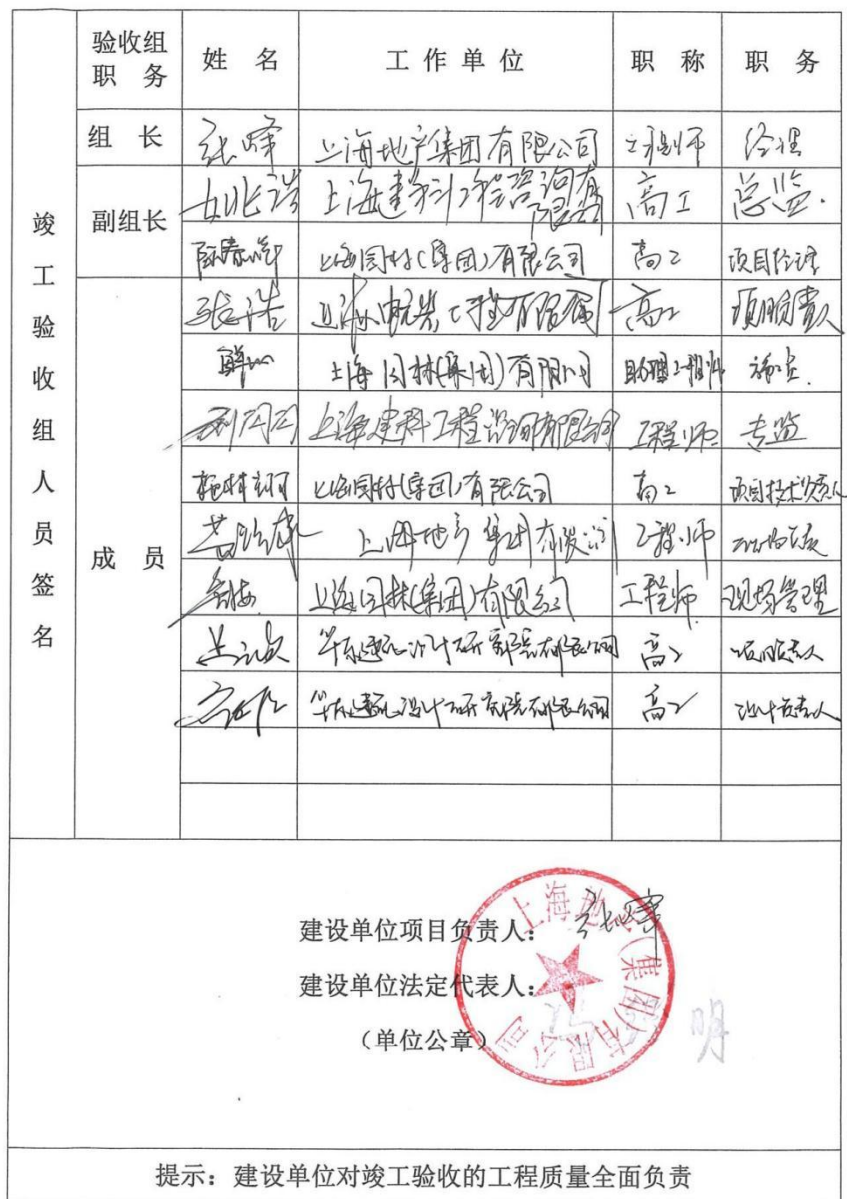 验收组职务 姓名 工作单位 职称 职务
竣工验收组人员签名
组长 张峰 上海地产集团有限公司 工程师 经理
副组长 姚兆 上海建科工程咨询有限公司 高工 总监
陈春 上海园林(集团)有限公司 高工 项目经理
成员
张浩 上海 工程有限公司 高工 项目负责人
上海园林(集团)有限公司 助理工程师 施工员
上海建科工程咨询有限公司 工程师 专监
上海园林(集团)有限公司 高工 项目技术负责人
上海地产集团有限公司 工程师
上海园林(集团)有限公司 工程师 现场管理
华东建筑设计研究院有限公司 高工 项目负责人
华东建筑设计研究院有限公司 高工 设计负责人
建设单位项目负责人: 张峰
建设单位法定代表人:
(单位公章)
上海地产(集团)有限公司
明
提示:建设单位对竣工验收的工程质量全面负责